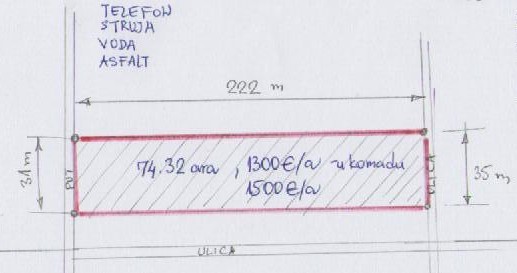 TELEFON
STRUJA
VODA
ASFALT
222 m
31 m
PUT
74.32 ara , 1300€/a u komadu
1500€/a
ULICA
35 m
ULICA